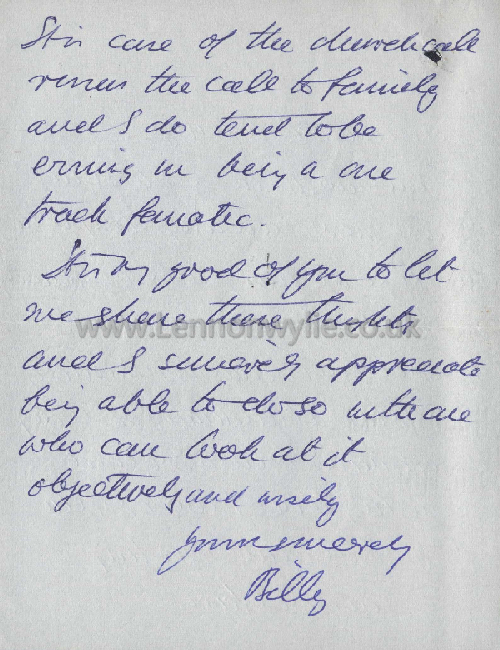 It is case of the church call
versus the call to family
and I do tend to be
erring in being a one
track fanatic.
It is very good of you to let
me share these thoughts
www.Lennonwylie.co.uk
and I sincerely appreciate
being able to do so with one
who can look at it
objectively and wisely
yours sincerely
Billy